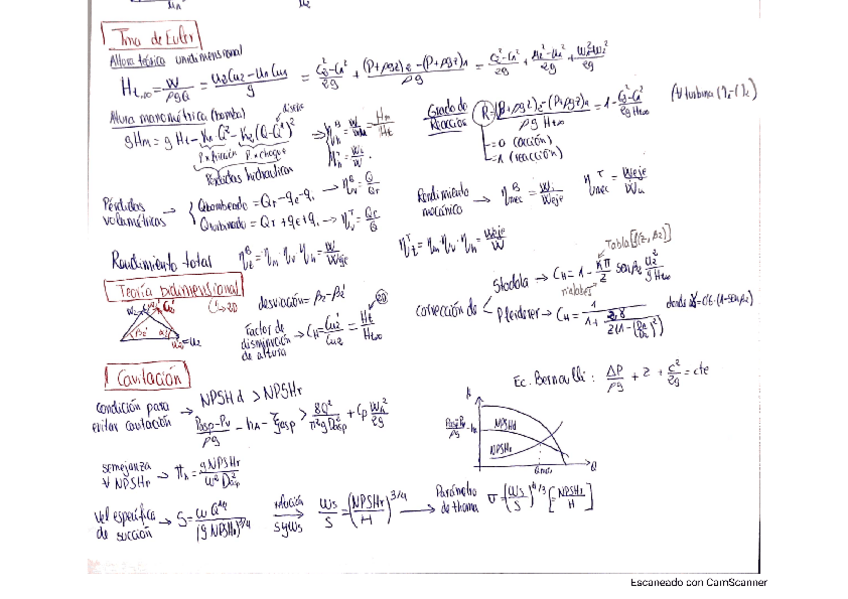 Tma de Euler
Altura teórica unidimensional
H_{t,∞} = W/ρgQ = (u_2 c_{u2} - u_1 c_{u1})/g = (c_2² - c_1²)/2g + ((P+ρgz)_2 - (P+ρgz)_1)/ρg = (c_2² - c_1²)/2g + (u_2² - u_1²)/2g + (w_1² - w_2²)/2g
Altura manométrica (bomba)
diseño
gH_m = gH_t - K_1 Q² - K_2 (Q - Q*)²
P×fricción P×choque
Pérdidas hidráulicas
Grado de Reacción
= 1 - (c_2² - c_1²)/2gH_{t∞}
(∀ turbina
= 0 (acción)
= 1 (reacción)
Pérdidas volumétricas →
Qbombeado = Q_r - q_e - q_i → η_v^B = Q/Q_r
Qturbinado = Q_r + q_e + q_i → η_v^T
Rendimiento mecánico → η_mec^B = W_i/W_eje η_mec^T = W_eje/W_u
Rendimiento total η_t^B = η_m · η_v · η_h = W/W_eje η_t^T = η_m · η_v · η_h = W_eje/W
Teoría bidimensional
desviación = β_2 - β_2'
Factor de disminución de altura → C_H = c_{u2}'/c_{u2} = H_t/H_{t∞}
2D
corrección de
Stodola → C_H = 1 - (Kπ/z) sen β_2 u_2²/gH_{t∞}
Tabla [f(z, β_2)]
nº álabes
Pfleiderer → C_H =
donde
Cavitación
condición para evitar cavitación → NPSHd > NPSHr
(P_asp - P_v)/ρg - h_A - ξ_asp > 8Q²/π²gD_asp⁴ + C_p w_1²/2g
Ec. Bernoulli: ΔP/ρg + z + c²/2g = cte
NPSHd
NPSHr
Q
semejanza ∀ NPSHr → π_A = gNPSHr/ω²D²
Vel específica de succión → S = ωQ^{1/2}/(gNPSHr)^{3/4}
relación S y ωs → ωs/S = (NPSHr/H)^{3/4} → Parámetro de thoma σ = (ωs/S)^{4/3} [= NPSHr/H]
Escaneado con CamScanner